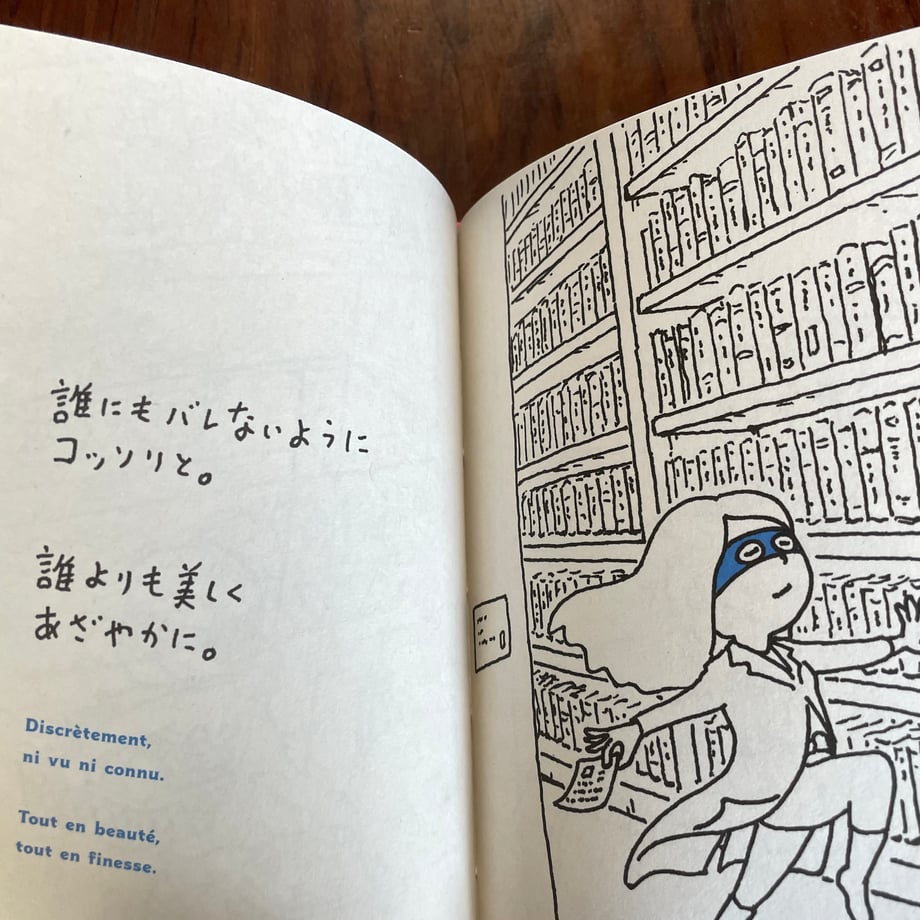 誰にもバレないように
コッソリと。
誰よりも美しく
あざやかに。
Discrètement,
ni vu ni connu.
Tout en beauté,
tout en finesse.